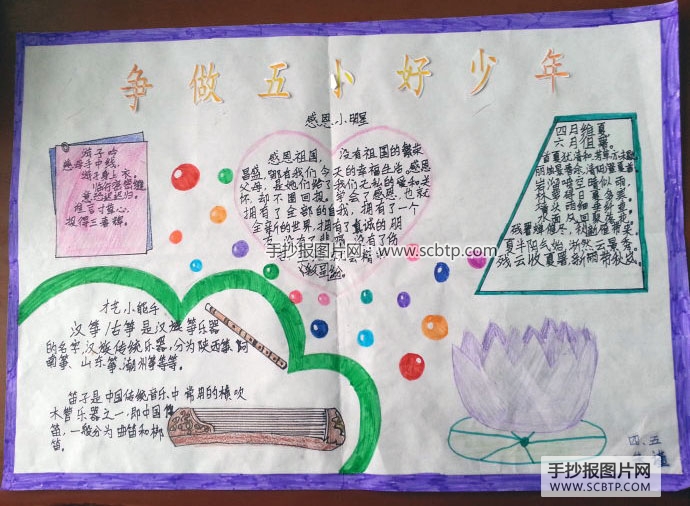 争做五小好少年
感恩小明星
游子吟
慈母手中线,
游子身上衣。
临行密密缝,
意恐迟迟归。
谁言寸草心,
报得三春辉。
感恩祖国,没有祖国的繁荣
昌盛,哪有我们今天的幸福生活。感恩
父母,是她们给了我们无私的爱和关
怀,却不图回报。学会了感恩,也就
拥有了全部的自我,拥有了一个
全新的世界,拥有了真诚的朋
手抄报图片网 www.scbtp.com
缤纷。
四月维夏
六月徂暑。
首夏犹清和,芳草亦未歇
岩溜喷空晴似雨,
林萝碍日夏多寒。
水面风回聚落花。
残云收夏暑,新雨带秋岚。
才艺小能手
汉筝/古筝是汉族筝乐器
的名字,汉族传统乐器,分为陕西筝、河
南筝、山东筝、潮州筝等等。
笛子是中国传统音乐中常用的横吹
木管乐器之一,即中国
笛,一般分为曲笛和梆
笛。
四、五
手抄报图片网
WWW.SCBTP.COM